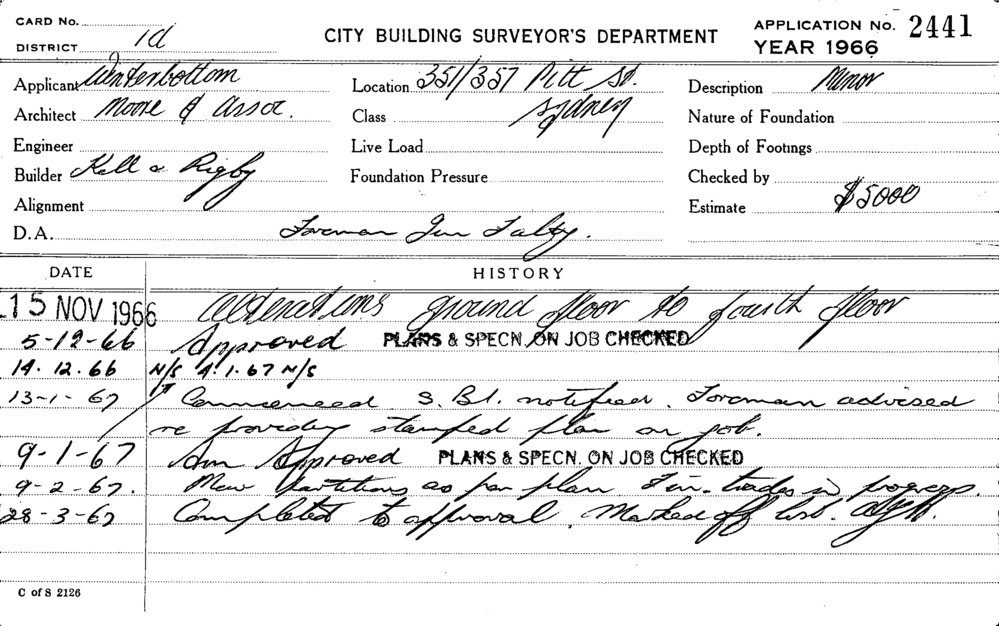 CARD No.
DISTRICT 1d
CITY BUILDING SURVEYOR'S DEPARTMENT
APPLICATION No. 2441
YEAR 1966
Applicant Winterbottom
Location 351/357 Pitt St.
Description Minor
Architect Moore & Assoc.
Class Sydney
Nature of Foundation
Engineer
Live Load
Depth of Footings
Builder Kell & Rigby
Foundation Pressure
Checked by
Alignment
Estimate $5000
D.A. Foreman Jim
DATE HISTORY
15 NOV 1966 Alterations ground floor to fourth floor
5-12-66 Approved PLANS & SPECN. ON JOB CHECKED
14.12.66 N/S 4.1.67 N/S
13-1-67 Commenced S.B.I. notified. Foreman advised
re providing stamped plan on job.
9-1-67 Am Approved PLANS & SPECN. ON JOB CHECKED
9-2-67. New partitions as per plan Fin. trades in progress.
28-3-67 Completed to approval. Marked off list.
C of S 2126